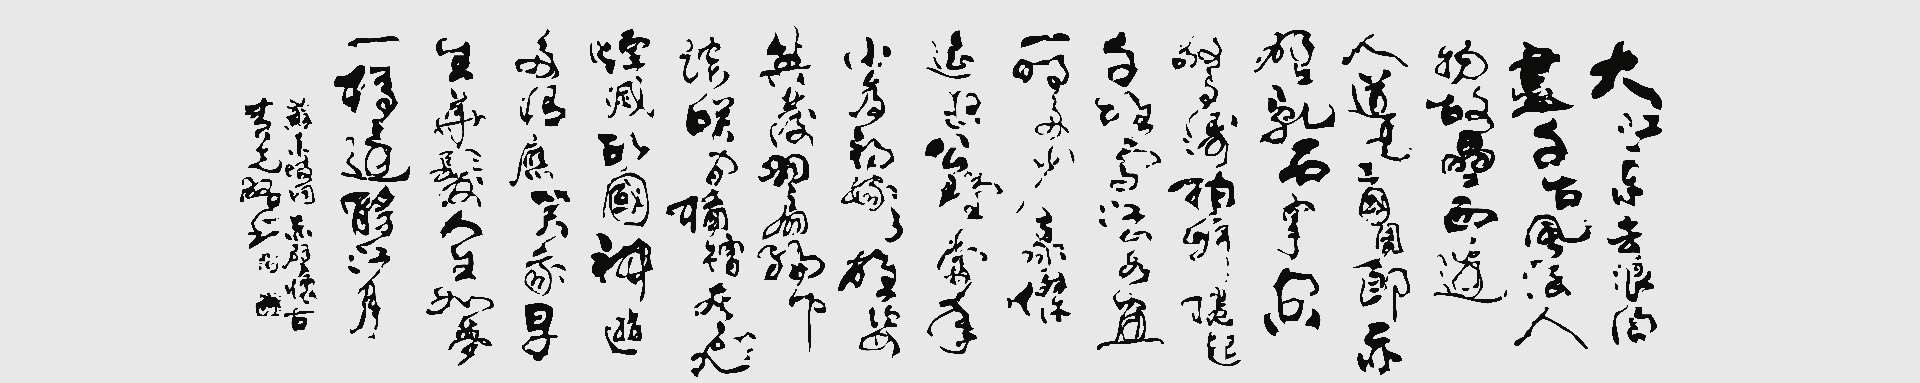 大江東去浪淘
盡千古風流人
物故壘西邊
人道是三國周郎赤
壁亂石穿空
驚濤拍岸捲起
千堆雪江山如畫
一時多少豪傑
遙想公瑾當年
小喬初嫁了雄姿
英發羽扇綸巾
談笑間檣櫓灰飛
煙滅故國神遊
多情應笑我早
生華髮人生如夢
一樽還酹江月
蘇東坡詞赤壁懷古